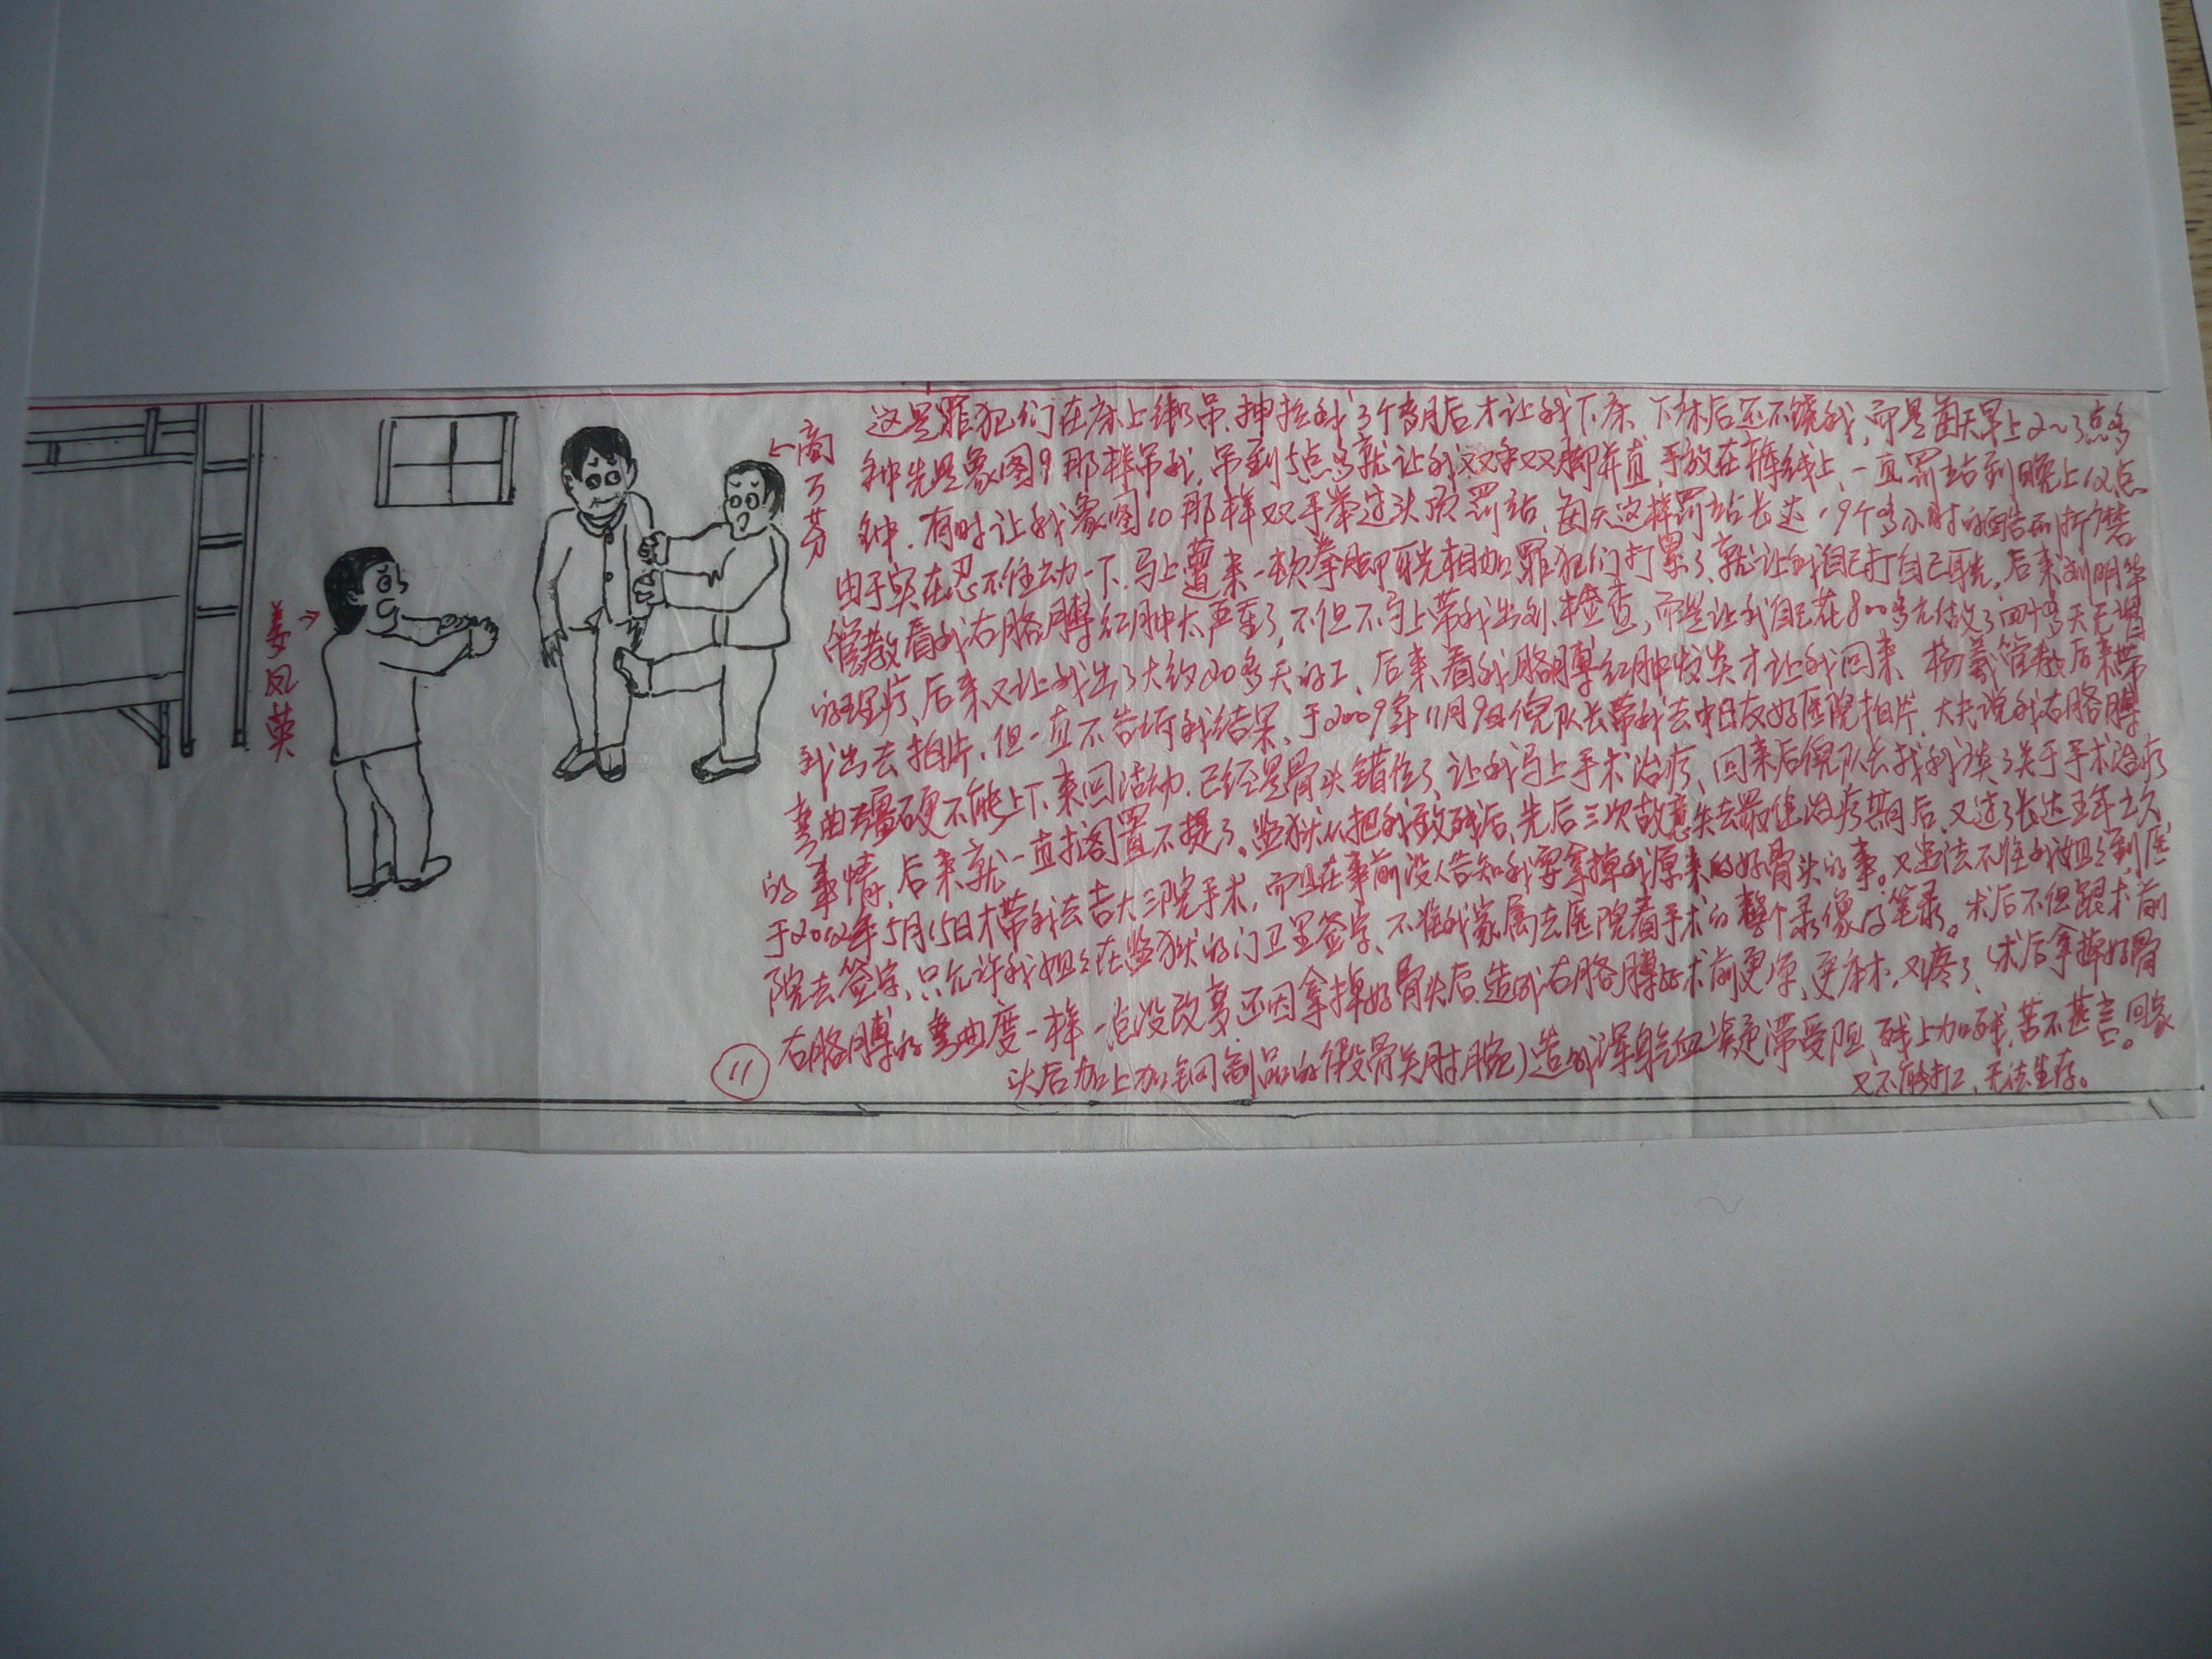 ←商万芬
姜凤英→
这是罪犯们在床上绑吊、抻拉我3个多月后才让我下床、下床后还不饶我,而是每天早上2~3点多
钟先是象图9那样吊我,吊到5点多就让我双手双脚并直,手放在裤线上,一直罚站到晚上12点
钟.有时让我象图10那样双手举过头顶罚站、每天这样罚站长达19个多小时的酷刑折磨
由于实在忍不住动一下.马上遭来一顿拳脚耳光相加罪犯们打累了、就让我自己打自己耳光,后来刘明华
管教看我右胳膊红肿太严重了,不但不马上带我出外检查,而是让我自己花800多元做了四十多天无谓
的理疗、后来又让我出了大约20多天的工、后来看我胳膊红肿发炎才让我回来 杨羲管教后来带
我出去拍片、但一直不告诉我结果、于2009年11月9日倪队长带我去中日友好医院拍片.大夫说我右胳膊
弯曲僵硬不能上下来回活动.已经是骨头错位了、让我马上手术治疗、回来后倪队长找我谈了关于手术治疗
的事情、后来就一直搁置不提了。监狱从把我致残后、先后三次故意失去最佳治疗期后、又过了长达五年之久
于2012年5月15日才带我去吉大三院手术,而且在事前没人告知我要拿掉我原来的好骨头的事。又违法不准我姐姐到医
院去签字、只允许我姐姐在监狱的门卫里签字、不准我家属去医院看手术的整个录像及笔录。术后不但跟术前
右胳膊的弯曲度一样一点没改变还因拿掉好骨头后.造成右胳膊比术前更凉、更麻木,又疼了(术后拿掉好骨
头后加上加钢制品的假骨关肘腕)造成浑身气血凝滞受阻、残上加残,苦不甚言。回家
又不能打工、无法生存。
11